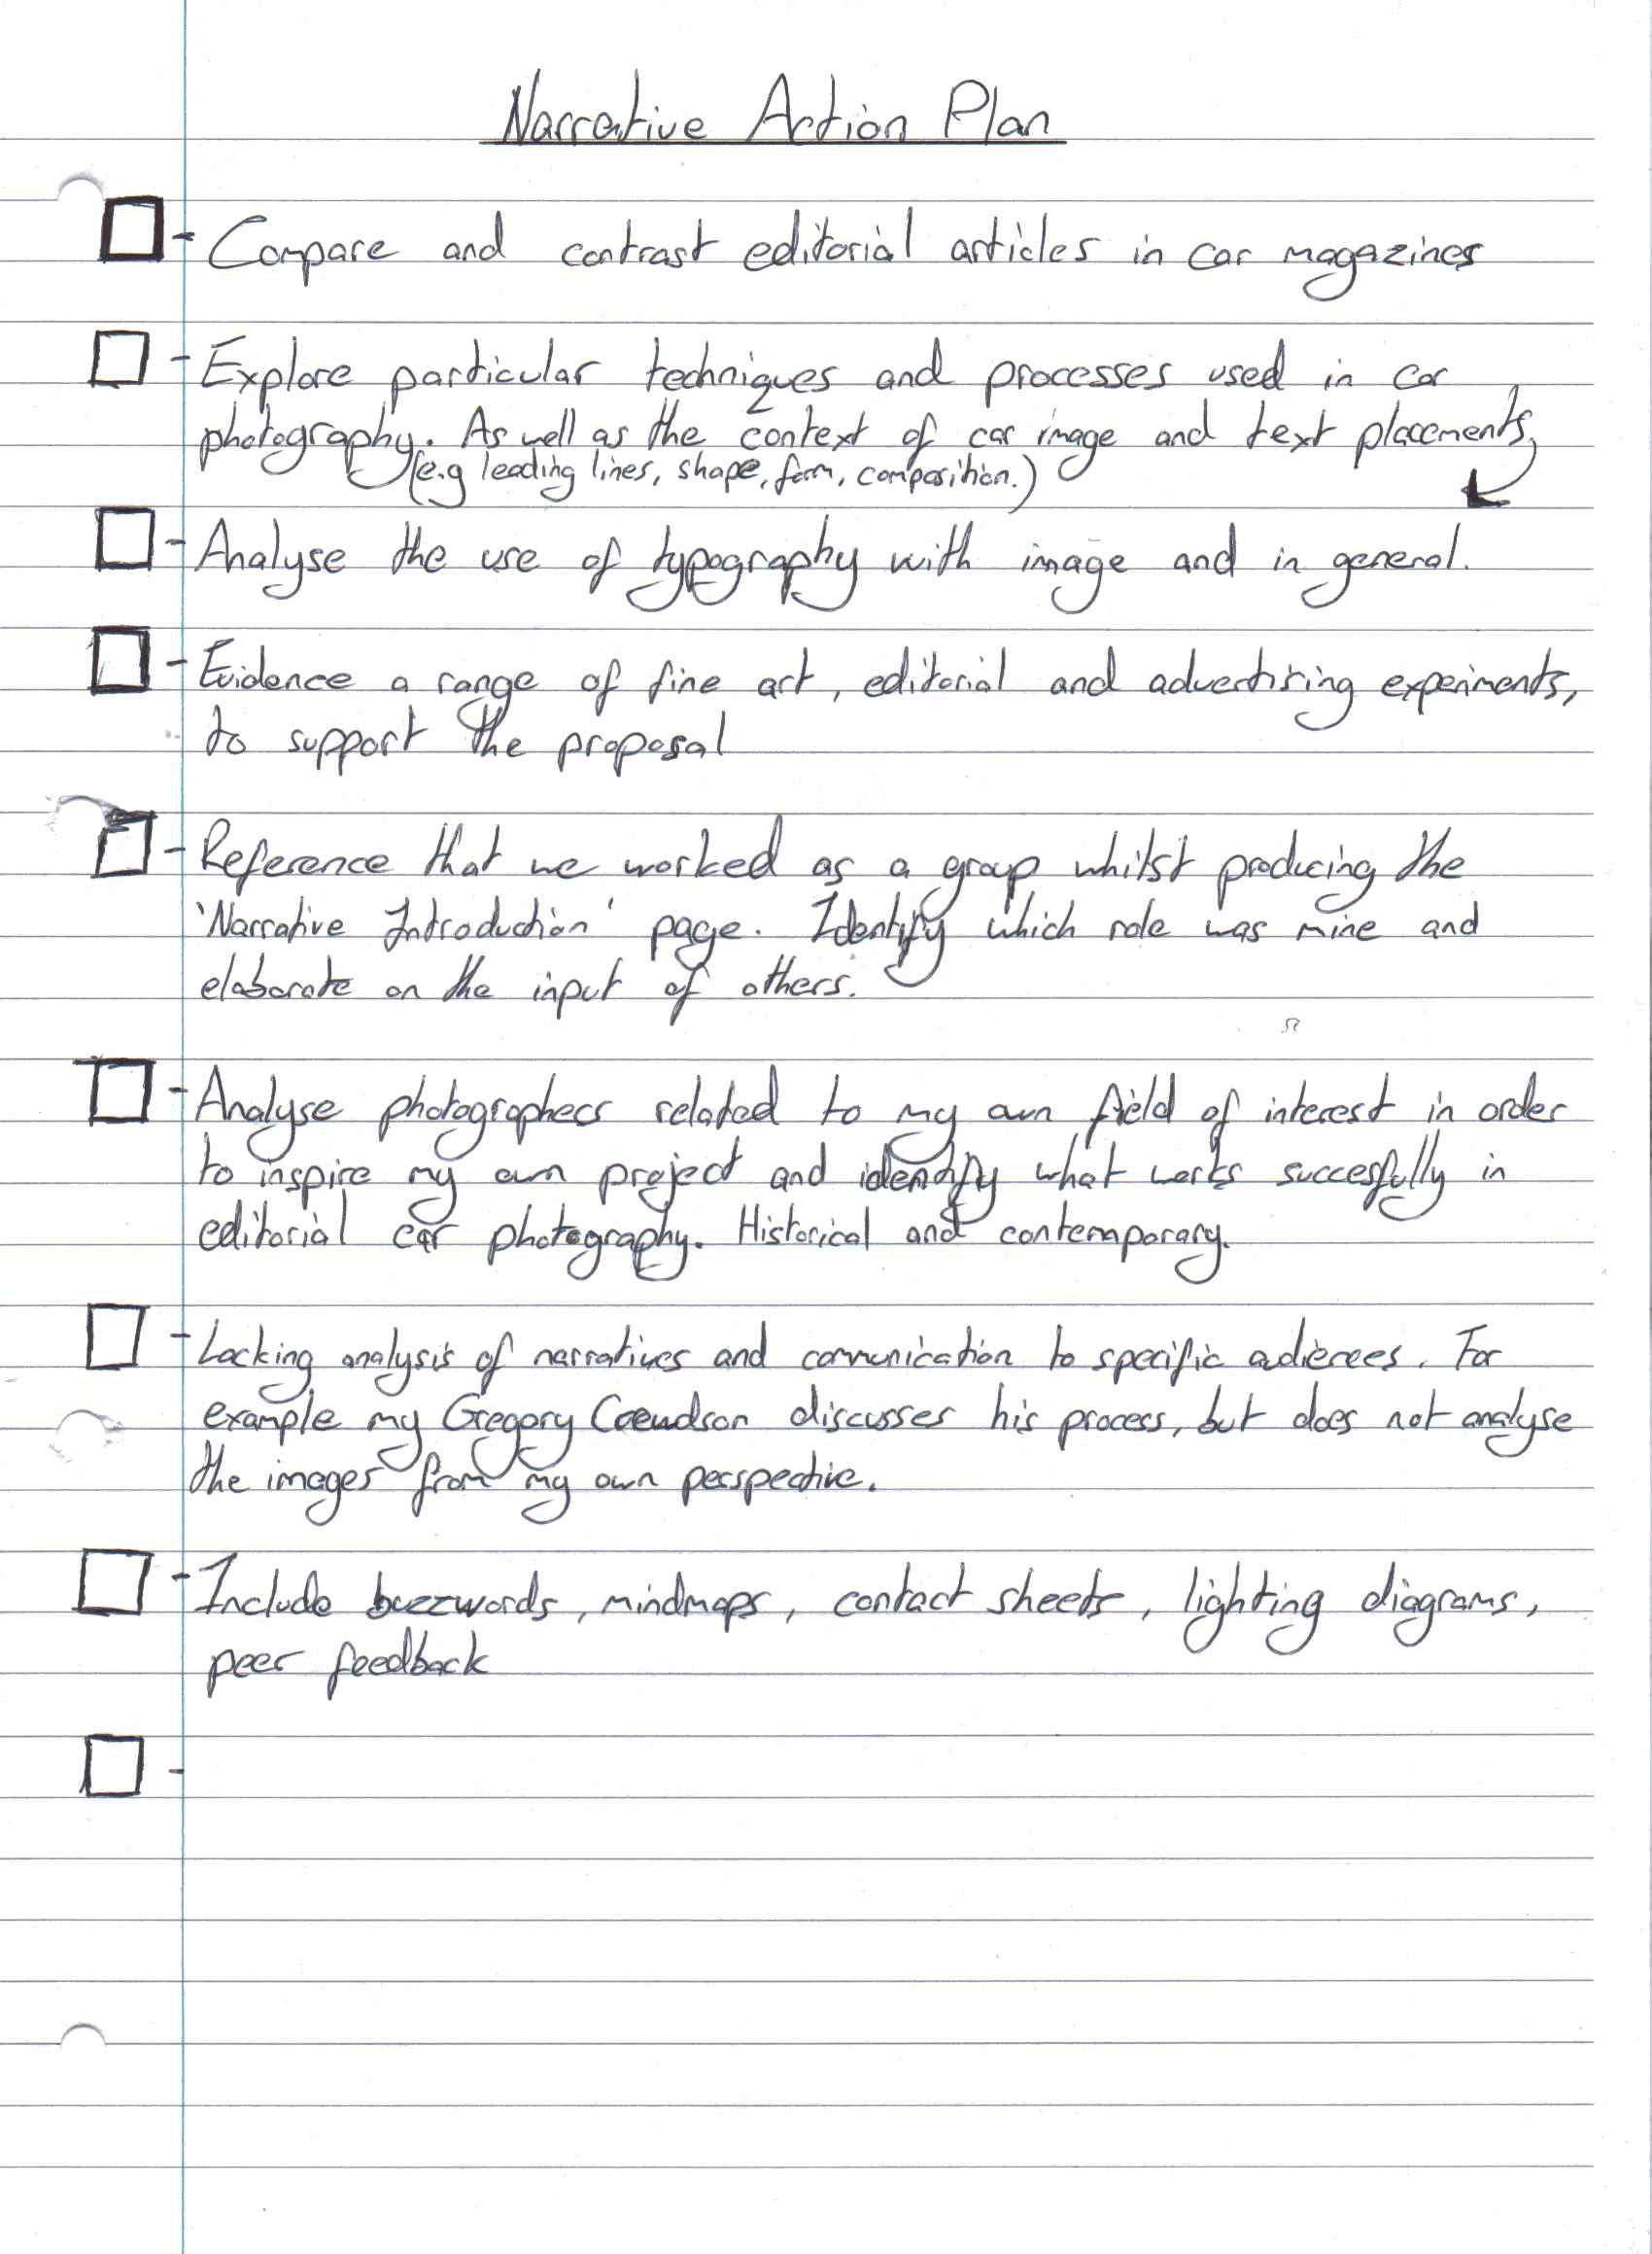 Narrative Action Plan
- Compare and contrast editorial articles in car magazines
- Explore particular techniques and processes used in car
photography. As well as the context of car image and text placements,
(e.g leading lines, shape, form, composition.)
- Analyse the use of typography with image and in general.
- Evidence a range of fine art, editorial and advertising experiments,
to support the proposal
- Reference that we worked as a group whilst producing the
'Narrative Introduction' page. Identify which role was mine and
elaborate on the input of others.
- Analyse photographers related to my own field of interest in order
to inspire my own project and identify what works succesfully in
editorial car photography. Historical and contemporary.
- Lacking analysis of narratives and communication to specific audiences. For
example my Gregory Crewdson discusses his process, but does not analyse
the images from my own perspective.
- Include buzzwords, mindmaps, contact sheets, lighting diagrams,
peer feedback
-